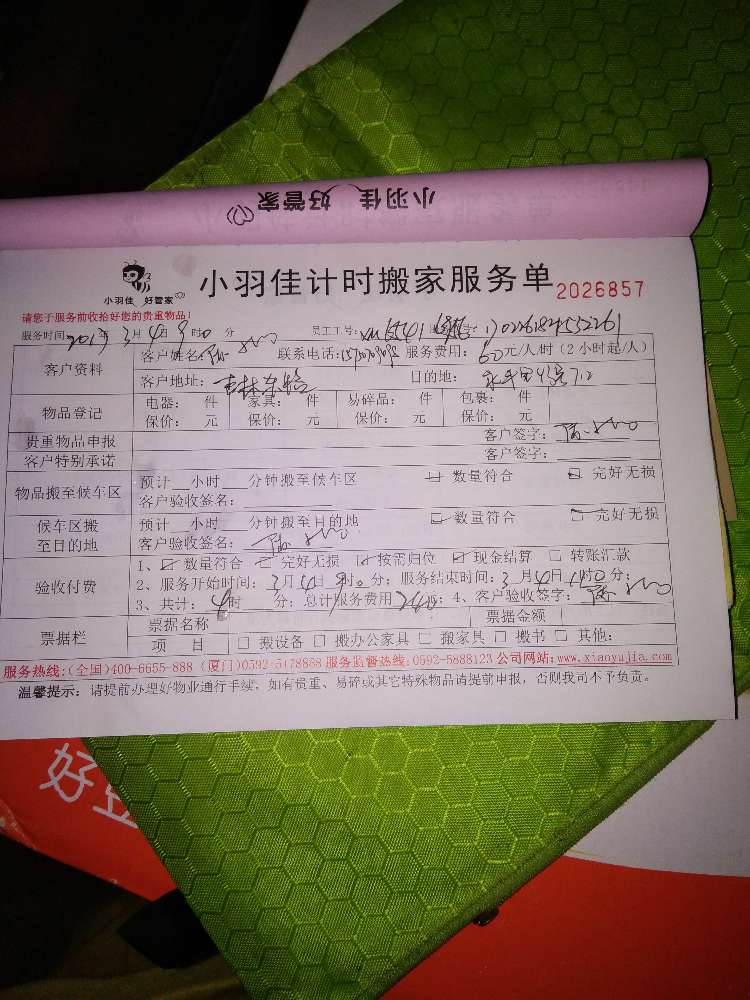 小羽佳 好管家
小羽佳 好管家
小羽佳计时搬家服务单 2026857
请您于服务前收拾好您的贵重物品！
服务时间 年3月4日9时0分 员工工号:
客户资料 客户姓名: 联系电话: 服务费用: 60元/人/时 (2小时起/人)
客户地址: 目的地:
物品登记 电器: 件 家具: 件 易碎品: 件 包裹: 件
保价: 元 保价: 元 保价: 元 保价: 元
贵重物品申报 客户签字:
客户特别承诺 客户签字:
物品搬至候车区 预计 小时 分钟搬至候车区 数量符合 完好无损
客户验收签名:
候车区搬至目的地 预计 小时 分钟搬至目的地 数量符合 完好无损
客户验收签名:
验收付费 1、 数量符合 完好无损 按需归位 现金结算 □ 转账汇款
2、服务开始时间: 3月4日9时0分; 服务结束时间: 3月4日 时0分;
3、共计: 4时 分; 总计服务费用240; 4、客户验收签字:
票据栏 票据名称 票据金额
项 目 □ 搬设备 □ 搬办公家具 □ 搬家具 □ 搬书 □ 其他:
服务热线:(全国)400-6655-888 (厦门)0592-5478868 服务监督热线:0592-5888123 公司网站: www.xiaoyujia.com
温馨提示: 请提前办理好物业通行手续, 如有贵重、易碎或其它特殊物品请提前申报, 否则我司不予负责。
好